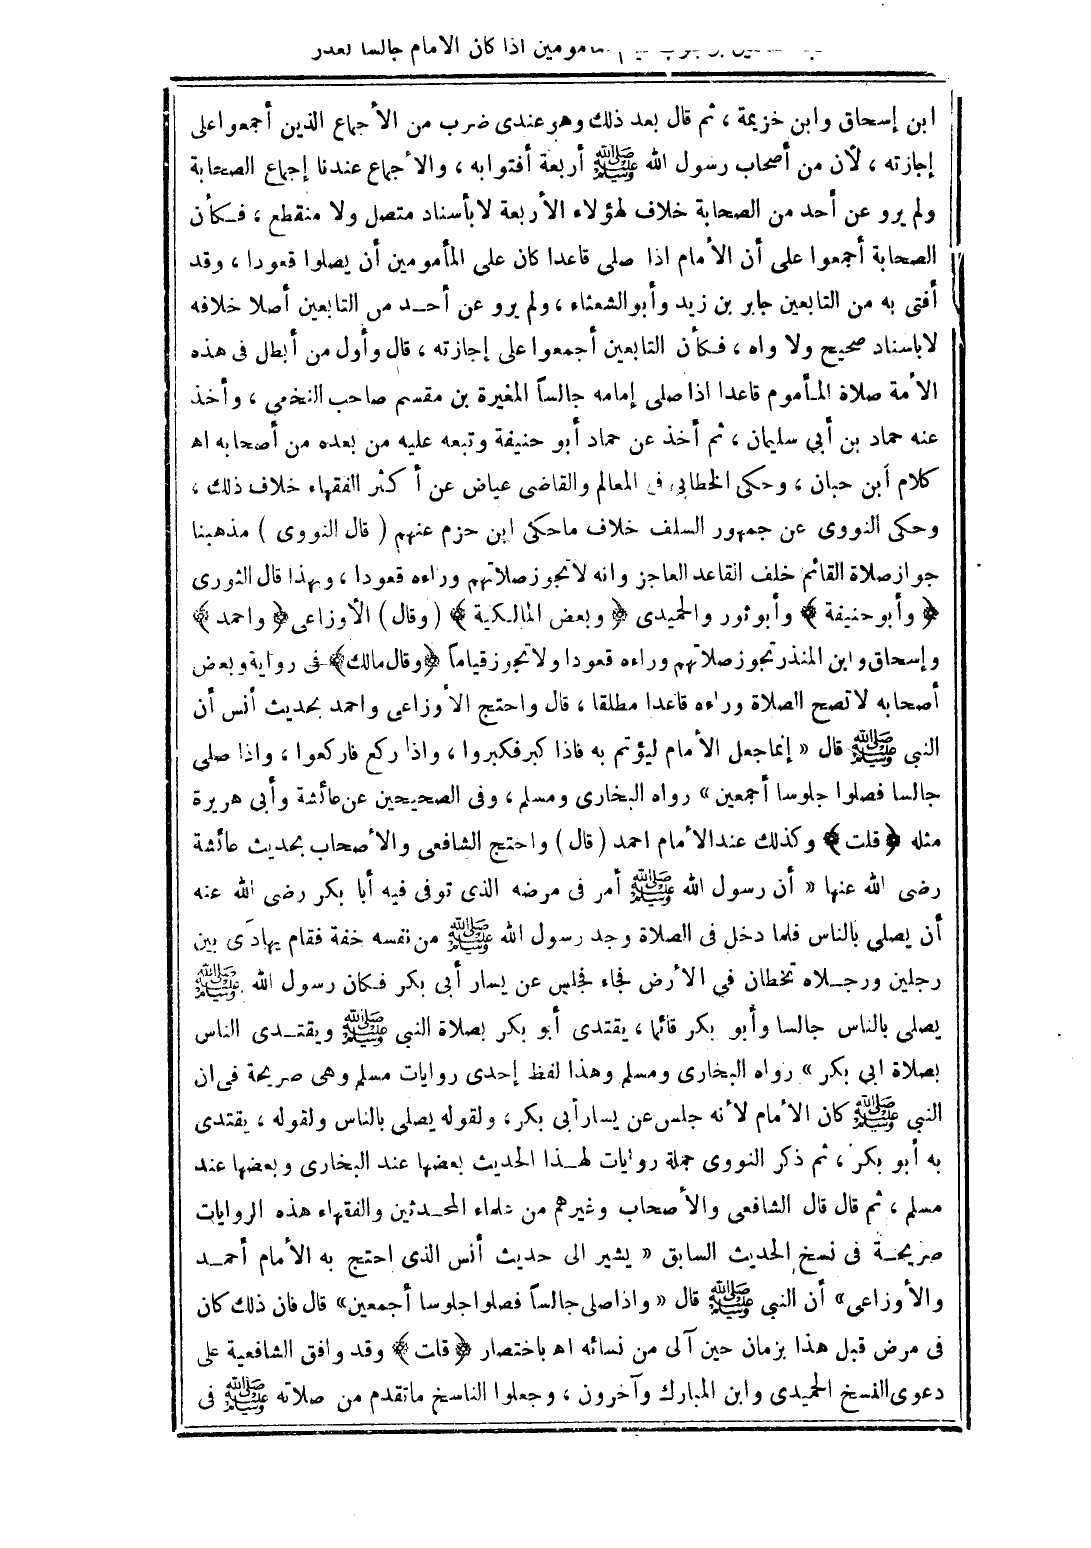 مأمومين اذا كان الامام جالسا لعذر
ابن إسحاق وابن خزيمة ، ثم قال بعد ذلك وهو عندى ضرب من الأجماع الذين أجمعوا على
إجازته ، لأن من أصحاب رسول الله ﷺ أربعة أفتوا به ، والأجماع عندنا إجماع الصحابة
ولم يرو عن أحد من الصحابة خلاف لهؤلاء الأربعة لا بأسناد متصل ولا منقطع ، فـكأن
الصحابة أجمعوا على أن الأمام اذا صلى قاعدا كان على المأمومين أن يصلوا قعودا ، وقد
أفتى به من التابعين جابر بن زيد وأبو الشعثاء ، ولم يرو عن أحـد من التابعين أصلا خلافه
لا باسناد صحيح ولا واه ، فـكأن التابعين أجمعوا على إجازته ، قال وأول من أبطل فى هذه
الأمة صلاة المأموم قاعدا اذا صلى إمامه جالساً المغيرة بن مقسم صاحب النخعى ، وأخذ
عنه حماد بن أبي سليمان ، ثم أخذ عن حماد أبو حنيفة وتبعه عليه من بعده من أصحابه اهـ
كلام ابن حبان ، وحكى الخطابى فى المعالم والقاضى عياض عن أكثر الفقهاء خلاف ذلك ،
وحكى النووى عن جمهور السلف خلاف ما حكى ابن حزم عنهم ( قال النووى ) مذهبنا
جواز صلاة القائم خلف القاعد العاجز وانه لا تجوز صلاتهم وراءه قعودا ، وبهذا قال الثورى
﴿ وأبو حنيفة ﴾ وأبو ثور والحميدى ﴿ وبعض المالكية ﴾ ( وقال ) الأوزاعى ﴿ واحمد ﴾
وإسحاق وابن المنذر تجوز صلاتهم وراءه قعودا ولا تجوز قياماً ﴿ وقال مالك ﴾ فى رواية وبعض
أصحابه لا تصح الصلاة وراءه قاعدا مطلقا ، قال واحتج الأوزاعى واحمد بحديث أنس أن
النبى ﷺ قال « إنما جعل الأمام ليؤتم به فاذا كبر فكبروا ، واذا ركع فاركعوا ، واذا صلى
جالسا فصلوا جلوسا أجمعين » رواه البخارى ومسلم ، وفى الصحيحين عن عائشة وأبى هريرة
مثله ﴿ قلت ﴾ وكذلك عند الأمام احمد ( قال ) واحتج الشافعى والأصحاب بحديث عائشة
رضى الله عنها « أن رسول الله ﷺ أمر فى مرضه الذى توفى فيه أبا بكر رضى الله عنه
أن يصلي بالناس فلما دخل فى الصلاة وجد رسول الله ﷺ من نفسه خفة فقام يهادَى بين
رجلين ورجـلاه تخطان في الأرض فجاء فجلس عن يسار أبى بكر فـكان رسول الله ﷺ
يصلى بالناس جالسا وأبو بكر قائما ، يقتدى أبو بكر بصلاة النبى ﷺ ويقتـدى الناس
بصلاة ابي بكر » رواه البخارى ومسلم وهذا لفظ إحدى روايات مسلم وهى صريحة فى ان
النبى ﷺ كان الأمام لأنه جلس عن يسار أبى بكر ، ولقوله يصلى بالناس ولقوله ، يقتدى
به أبو بكر ، ثم ذكر النووى جملة روايات لهـذا الحديث بعضها عند البخارى وبعضها عند
مسلم ، ثم قال قال الشافعى والأصحاب وغيرهم من علماء المحـدثين والفقهاء هذه الروايات
صريحـة فى نسخ الحديث السابق « يشير الى حديث أنس الذى احتج به الأمام أحمـد
والأوزاعى » أن النبى ﷺ قال « واذا صلى جالساً فصلوا جلوسا أجمعين » قال فان ذلك كان
فى مرض قبل هذا بزمان حين آلى من نسائه اهـ باختصار ﴿ قلت ﴾ وقد وافق الشافعية على
دعوى النسخ الحميدى وابن المبارك وآخرون ، وجعلوا الناسخ ما تقدم من صلاته ﷺ فى